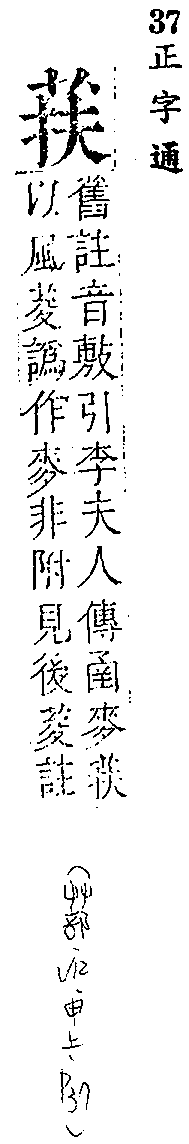 37 正字通
荴
舊註音敷引李夫人傳函麥荴
以風荾譌作麥非附見後荾註
(艸部 申上